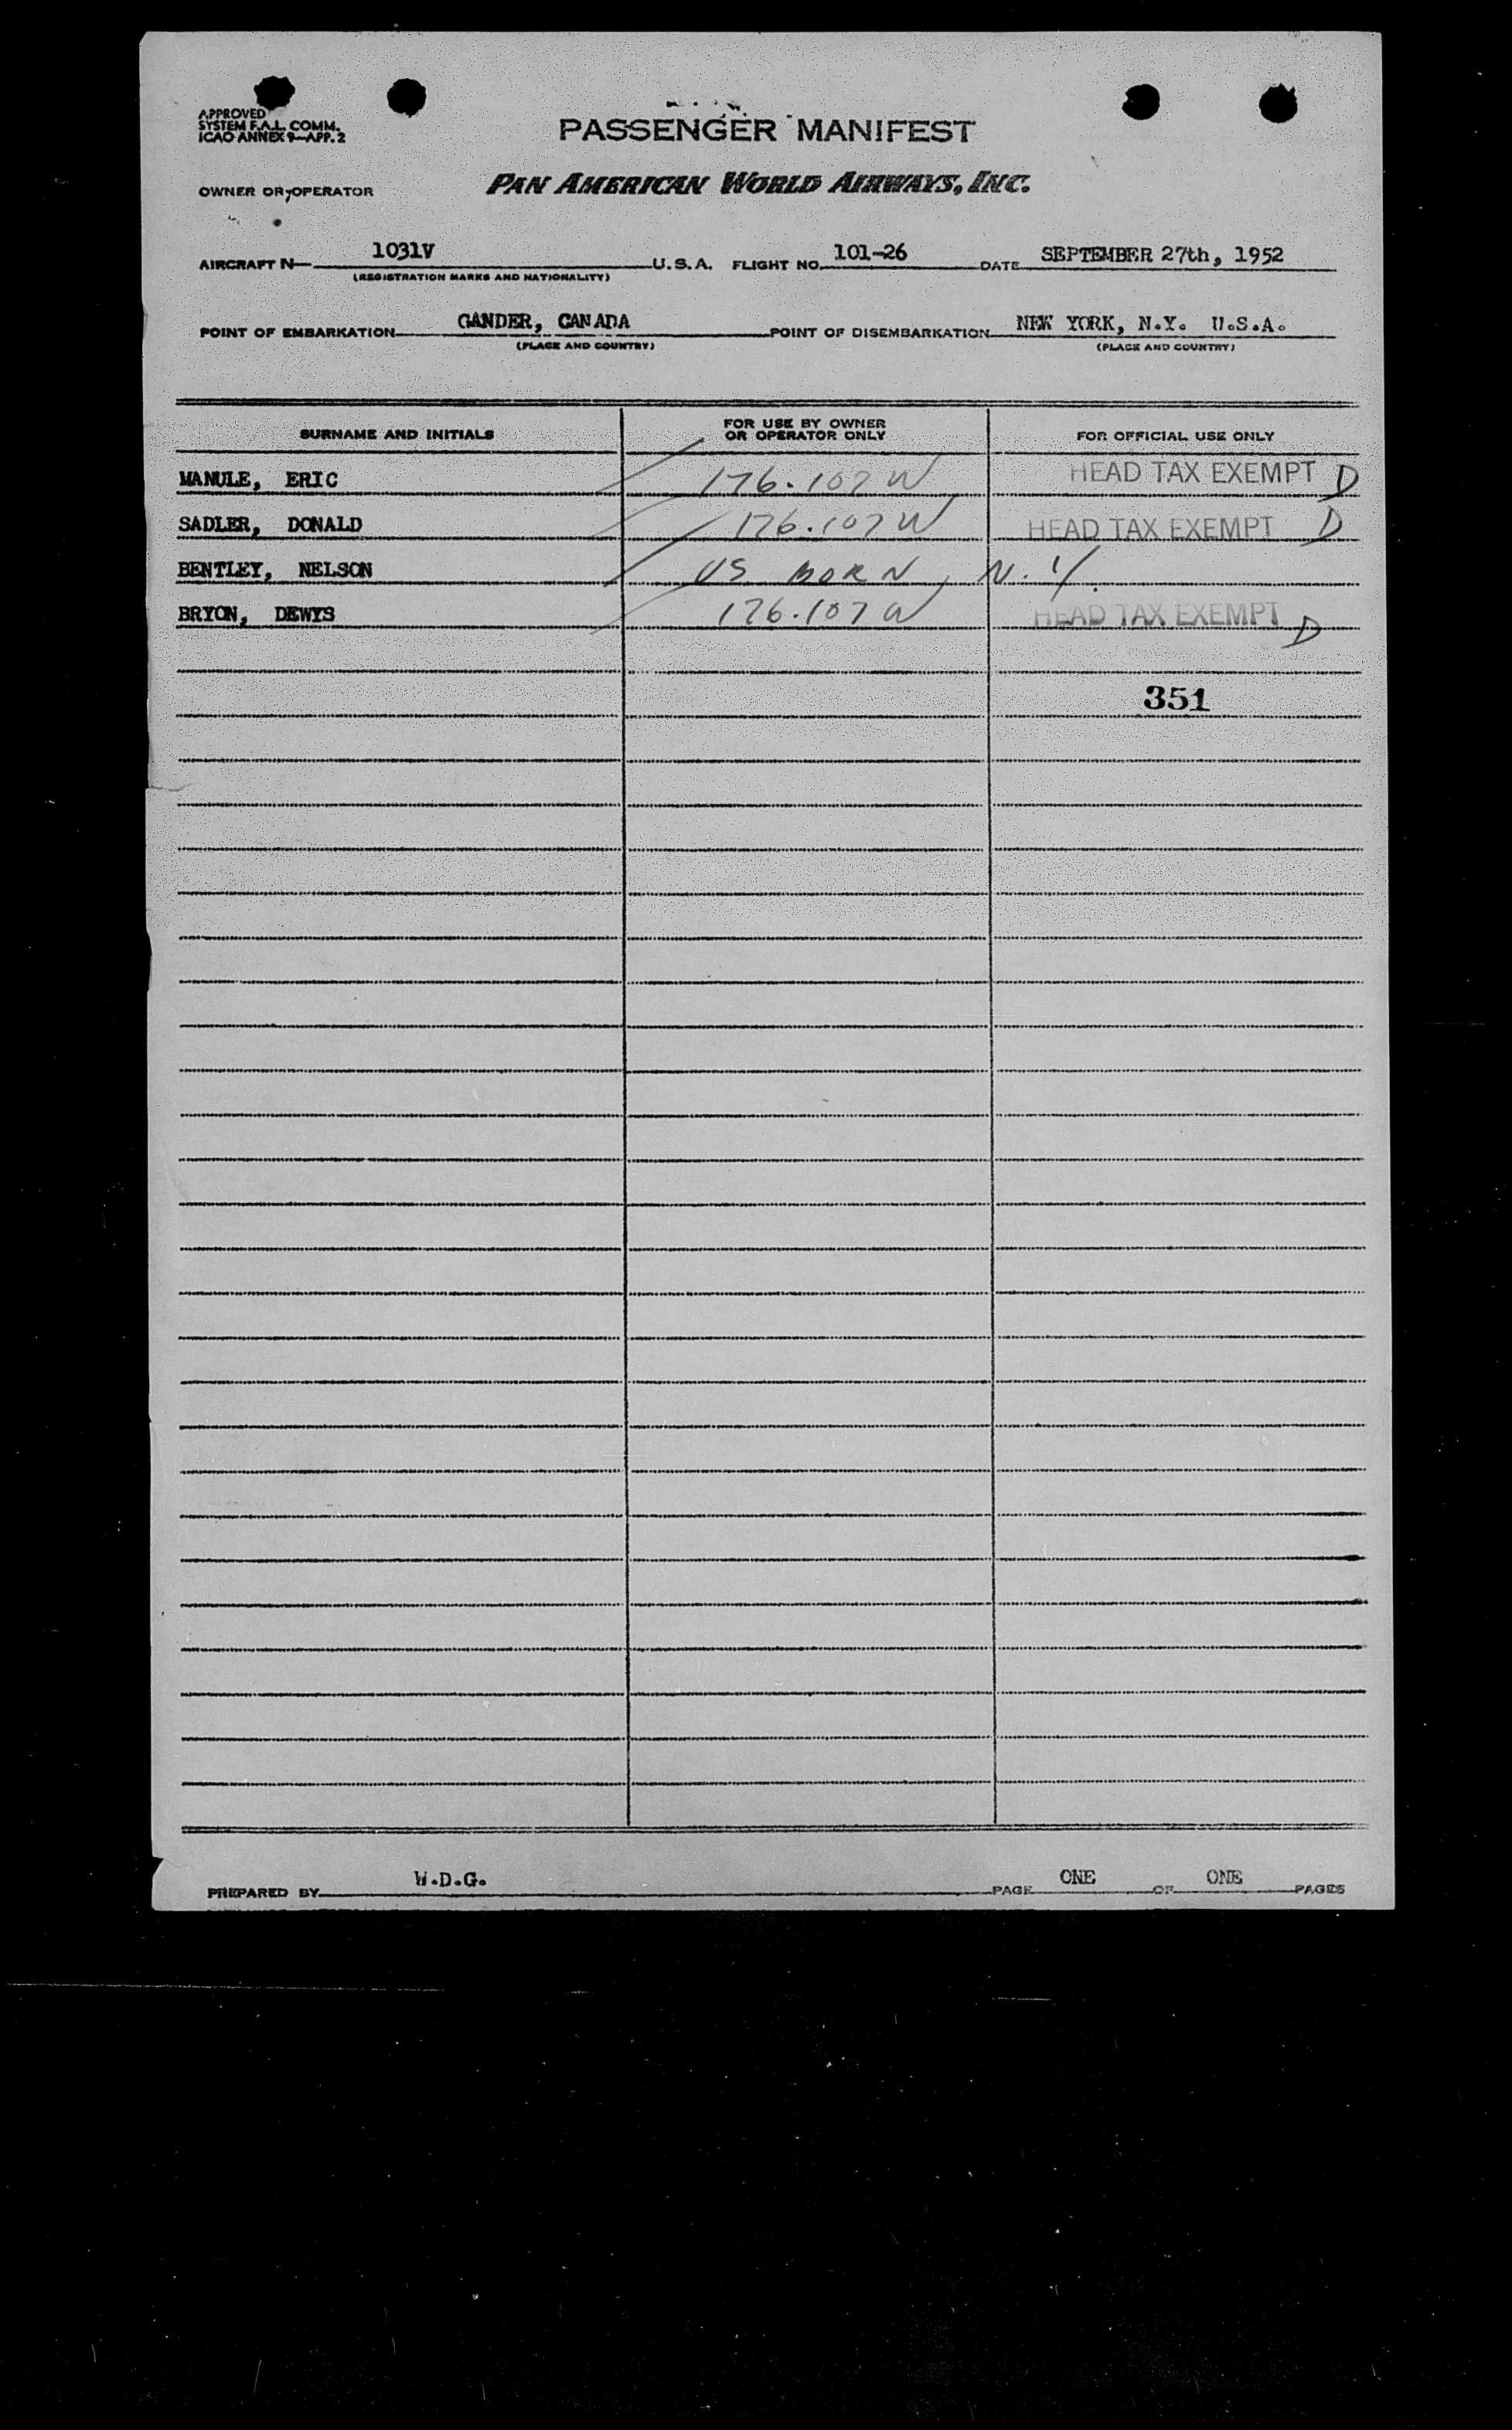 APPROVED
SYSTEM F.A.L. COMM.
ICAO ANNEX 9—APP. 2
PASSENGER MANIFEST
OWNER OR OPERATOR PAN AMERICAN WORLD AIRWAYS, INC.
AIRCRAFT N— 1031V U.S.A. FLIGHT NO. 101-26 DATE SEPTEMBER 27th, 1952
(REGISTRATION MARKS AND NATIONALITY)
POINT OF EMBARKATION GANDER, CANADA POINT OF DISEMBARKATION NEW YORK, N.Y. U.S.A.
(PLACE AND COUNTRY) (PLACE AND COUNTRY)
SURNAME AND INITIALS FOR USE BY OWNER OR OPERATOR ONLY FOR OFFICIAL USE ONLY
MANULE, ERIC 176.107 W HEAD TAX EXEMPT D
SADLER, DONALD 176.107 W HEAD TAX EXEMPT D
BENTLEY, NELSON US BORN, N.Y.
BRYON, DEWYS 176.107 W HEAD TAX EXEMPT D
351
PREPARED BY W.D.G. PAGE ONE OF ONE PAGES